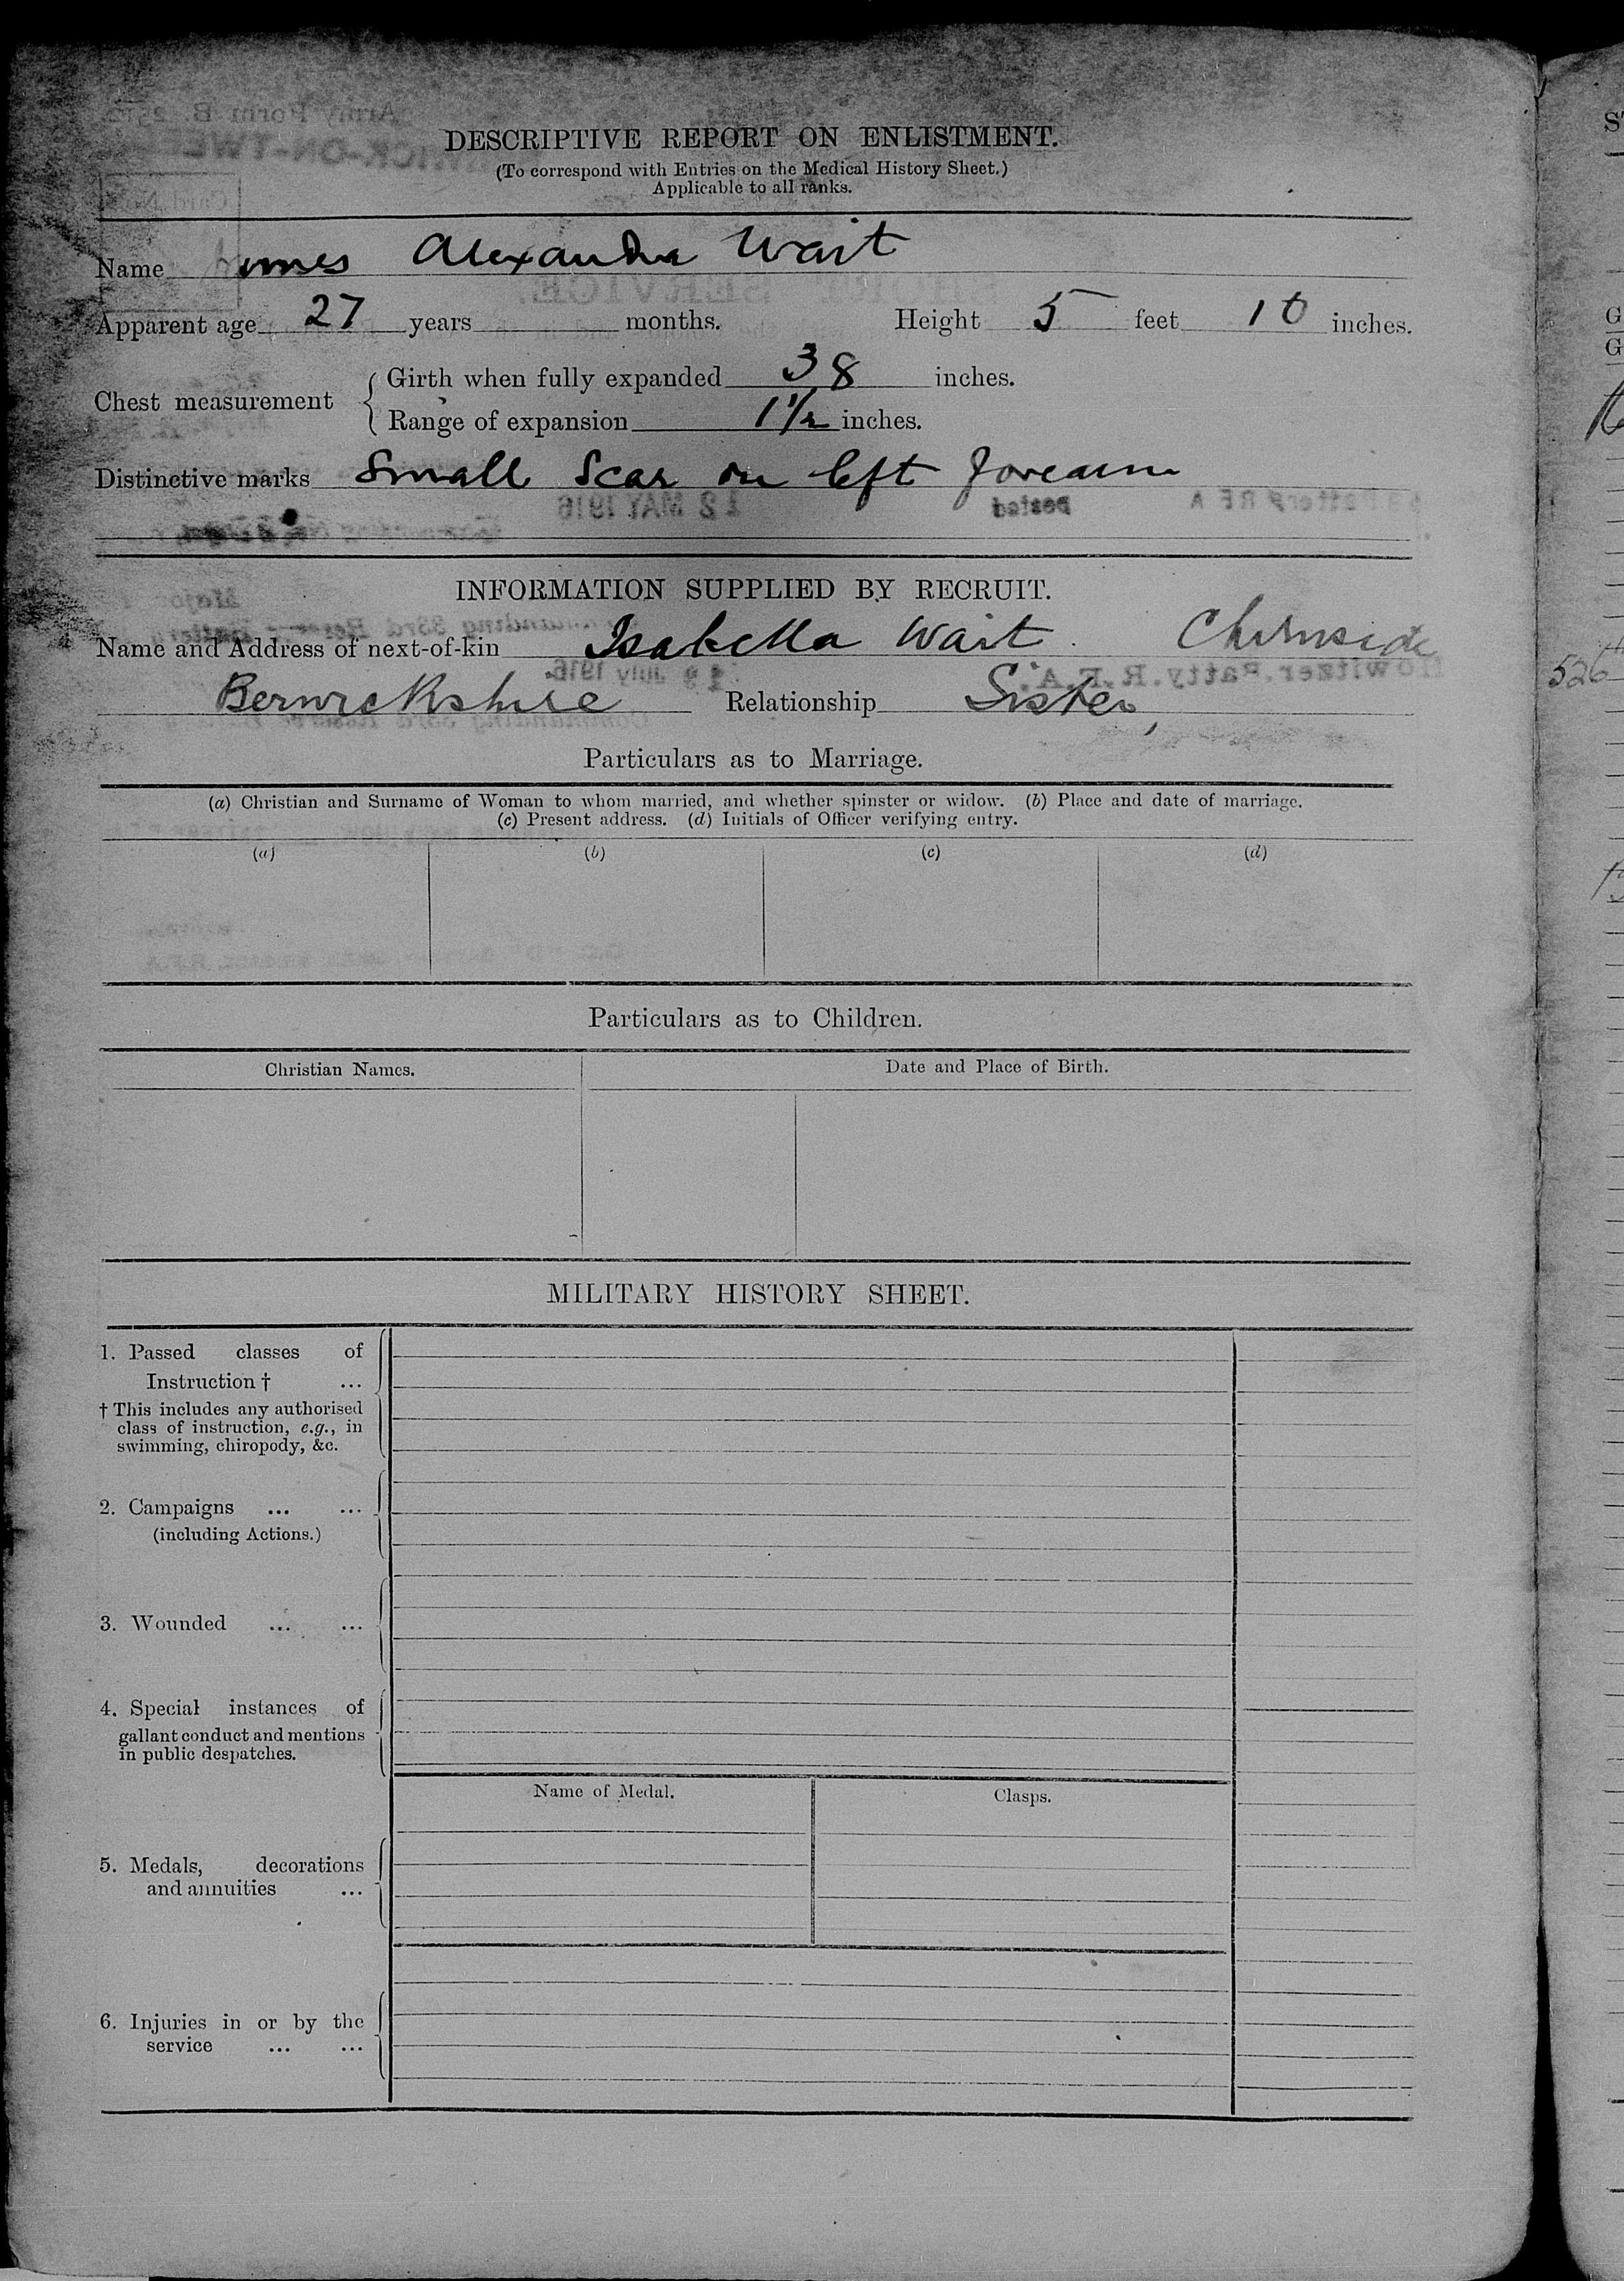 DESCRIPTIVE REPORT ON ENLISTMENT.
(To correspond with Entries on the Medical History Sheet.)
Applicable to all ranks.
Name James Alexander Wait
Apparent age 27 years months. Height 5 feet 10 inches.
Chest measurement { Girth when fully expanded 38 inches.
Range of expansion 1 1/2 inches.
Distinctive marks Small Scar on left forearm
12 MAY 1916 posted Battery R F A
INFORMATION SUPPLIED BY RECRUIT.
Name and Address of next-of-kin Isabella Wait. Chirnside
19 July 1916 Howitzer. Batty. R.F.A.
Berwickshire Relationship Sister,
Particulars as to Marriage.
(a) Christian and Surname of Woman to whom married, and whether spinster or widow. (b) Place and date of marriage.
(c) Present address. (d) Initials of Officer verifying entry.
(a) (b) (c) (d)
Particulars as to Children.
Christian Names. Date and Place of Birth.
MILITARY HISTORY SHEET.
1. Passed classes of
Instruction † ...
† This includes any authorised
class of instruction, e.g., in
swimming, chiropody, &c.
2. Campaigns ... ...
(including Actions.)
3. Wounded ... ...
4. Special instances of
gallant conduct and mentions
in public despatches.
Name of Medal. Clasps.
5. Medals, decorations
and annuities ...
6. Injuries in or by the
service ... ...